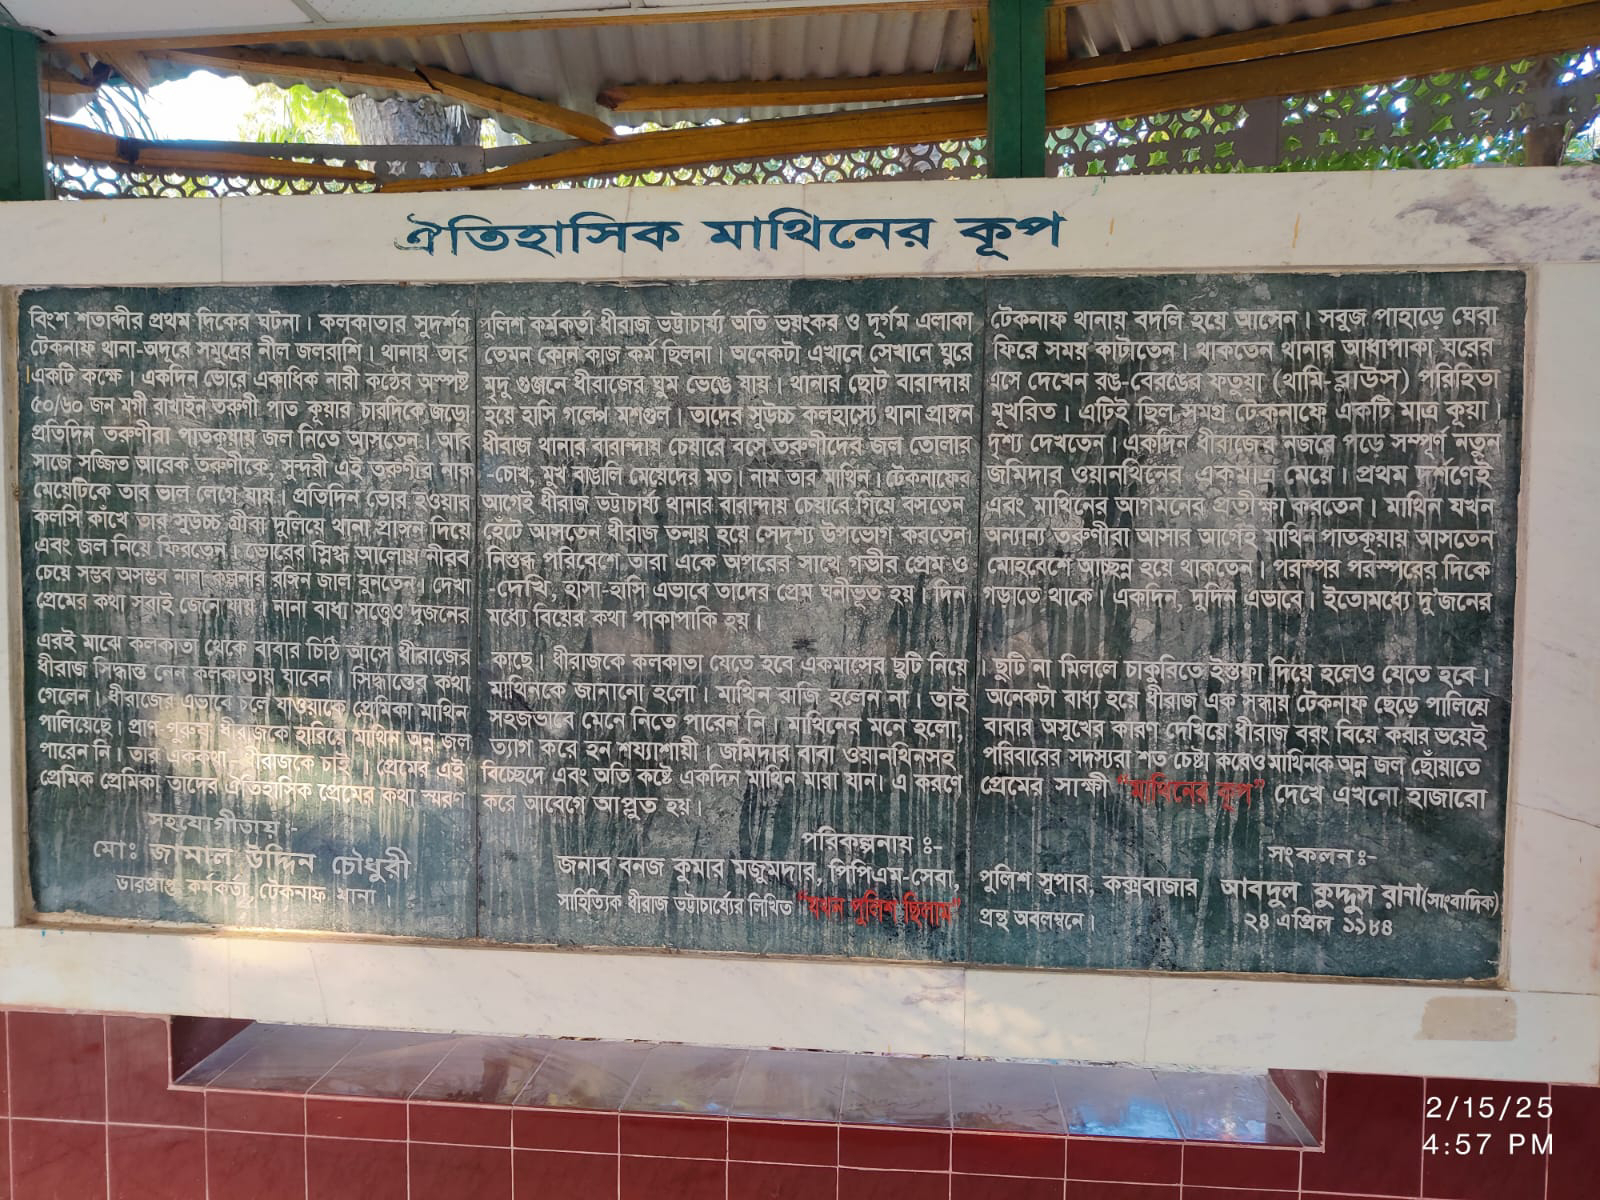 ঐতিহাসিক মাথিনের কূপ
বিংশ শতাব্দীর প্রথম দিকের ঘটনা। কলকাতার সুদর্শণ পুলিশ কর্মকর্তা ধীরাজ ভট্টাচার্য্য অতি ভয়ংকর ও দূর্গম এলাকা টেকনাফ থানায় বদলি হয়ে আসেন। সবুজ পাহাড়ে ঘেরা
টেকনাফ থানা-অদূরে সমুদ্রের নীল জলরাশি। থানায় তার তেমন কোন কাজ কর্ম ছিলনা। অনেকটা এখানে সেখানে ঘুরে ফিরে সময় কাটাতেন। থাকতেন থানার আধাপাকা ঘরের
একটি কক্ষে। একদিন ভোরে একাধিক নারী কন্ঠের অস্পষ্ট মৃদু গুঞ্জনে ধীরাজের ঘুম ভেঙে যায়। থানার ছোট বারান্দায় এসে দেখেন রঙ-বেরঙের ফতুয়া (থামি-ব্লাউস) পরিহিতা
৫০/৬০ জন মগী রাখাইন তরুণী পাত কূয়ার চারদিকে জড়ো হয়ে হাসি গল্পে মশগুল। তাদের সুউচ্চ কলহাস্যে থানা প্রাঙ্গন মূখরিত। এটিই ছিল সমগ্র টেকনাফে একটি মাত্র কূয়া।
প্রতিদিন তরুণীরা পাতকূয়ায় জল নিতে আসতেন। আর ধীরাজ থানার বারান্দায় চেয়ারে বসে তরুণীদের জল তোলার দৃশ্য দেখতেন। একদিন ধীরাজের নজরে পড়ে সম্পূর্ণ নতুন
সাজে সজ্জিত আরেক তরুণীকে, সুন্দরী এই তরুণীর নাক -চোখ, মুখ বাঙালি মেয়েদের মত। নাম তার মাথিন। টেকনাফের জমিদার ওয়ানথিনের একমাত্র মেয়ে। প্রথম দর্শণেই
মেয়েটিকে তার ভাল লেগে যায়। প্রতিদিন ভোর হওয়ার আগেই ধীরাজ ভট্টাচার্য্য থানার বারান্দায় চেয়ারে গিয়ে বসতেন এবং মাথিনের আগমনের প্রতীক্ষা করতেন। মাথিন যখন
কলসি কাঁখে তার সুউচ্চ গ্রীবা দুলিয়ে থানা প্রাঙ্গন দিয়ে হেঁটে আসতেন ধীরাজ তন্ময় হয়ে সেদৃশ্য উপভোগ করতেন অন্যান্য তরুণীরা আসার আগেই মাথিন পাতকূয়ায় আসতেন
এবং জল নিয়ে ফিরতেন। ভোরের স্নিগ্ধ আলোয় নীরব নিস্তব্ধ পরিবেশে তারা একে অপরের সাথে গভীর প্রেম ও মোহবেশে আচ্ছন্ন হয়ে থাকতেন। পরস্পর পরস্পরের দিকে
চেয়ে সম্ভব অসম্ভব নানা কল্পনার রঙ্গিন জাল বুনতেন। দেখা -দেখি, হাসা-হাসি এভাবে তাদের প্রেম ঘনীভূত হয়। দিন গড়াতে থাকে। একদিন, দুদিন এভাবে। ইতোমধ্যে দু'জনের
প্রেমের কথা সবাই জেনে যায়। নানা বাধা সত্ত্বেও দুজনের মধ্যে বিয়ের কথা পাকাপাকি হয়।
এরই মাঝে কলকাতা থেকে বাবার চিঠি আসে ধীরাজের কাছে। ধীরাজকে কলকাতা যেতে হবে একমাসের ছুটি নিয়ে। ছুটি না মিললে চাকুরিতে ইস্তফা দিয়ে হলেও যেতে হবে।
ধীরাজ সিদ্ধান্ত নেন কলকাতায় যাবেন। সিদ্ধান্তের কথা মাথিনকে জানানো হলো। মাথিন রাজি হলেন না। তাই অনেকটা বাধ্য হয়ে ধীরাজ এক সন্ধায় টেকনাফ ছেড়ে পালিয়ে
গেলেন। ধীরাজের এভাবে চলে যাওয়াকে প্রেমিকা মাথিন সহজভাবে মেনে নিতে পারেন নি। মাথিনের মনে হলো, বাবার অসুখের কারণ দেখিয়ে ধীরাজ বরং বিয়ে করার ভয়েই
পালিয়েছে। প্রাণ-পুরুষ ধীরাজকে হারিয়ে মাথিন অন্ন জল ত্যাগ করে হন শয্যাশায়ী। জমিদার বাবা ওয়ানথিনসহ পরিবারের সদস্যরা শত চেষ্টা করেও মাথিনকে অন্ন জল ছোঁয়াতে
পারেন নি। তার এককথা- ধীরাজকে চাই। প্রেমের এই বিচ্ছেদে এবং অতি কষ্টে একদিন মাথিন মারা যান। এ করণে প্রেমের সাক্ষী "মাথিনের কূপ" দেখে এখনো হাজারো
প্রেমিক প্রেমিকা তাদের ঐতিহাসিক প্রেমের কথা স্মরণ করে আবেগে আপ্লুত হয়।
সহযোগীতায় :-
মো: জামাল উদ্দিন চৌধুরী
ভারপ্রাপ্ত কর্মকর্তা, টেকনাফ থানা।
পরিকল্পনায় ঃ-
জনাব বনজ কুমার মজুমদার, পিপিএম-সেবা, পুলিশ সুপার, কক্সবাজার
সাহিত্যিক ধীরাজ ভট্টাচার্য্যের লিখিত "যখন পুলিশ ছিলাম" গ্রন্থ অবলম্বনে।
সংকলন ঃ-
আবদুল কুদ্দুস রানা (সাংবাদিক)
২৪ এপ্রিল ১৯৮৪
2/15/25
4:57 PM